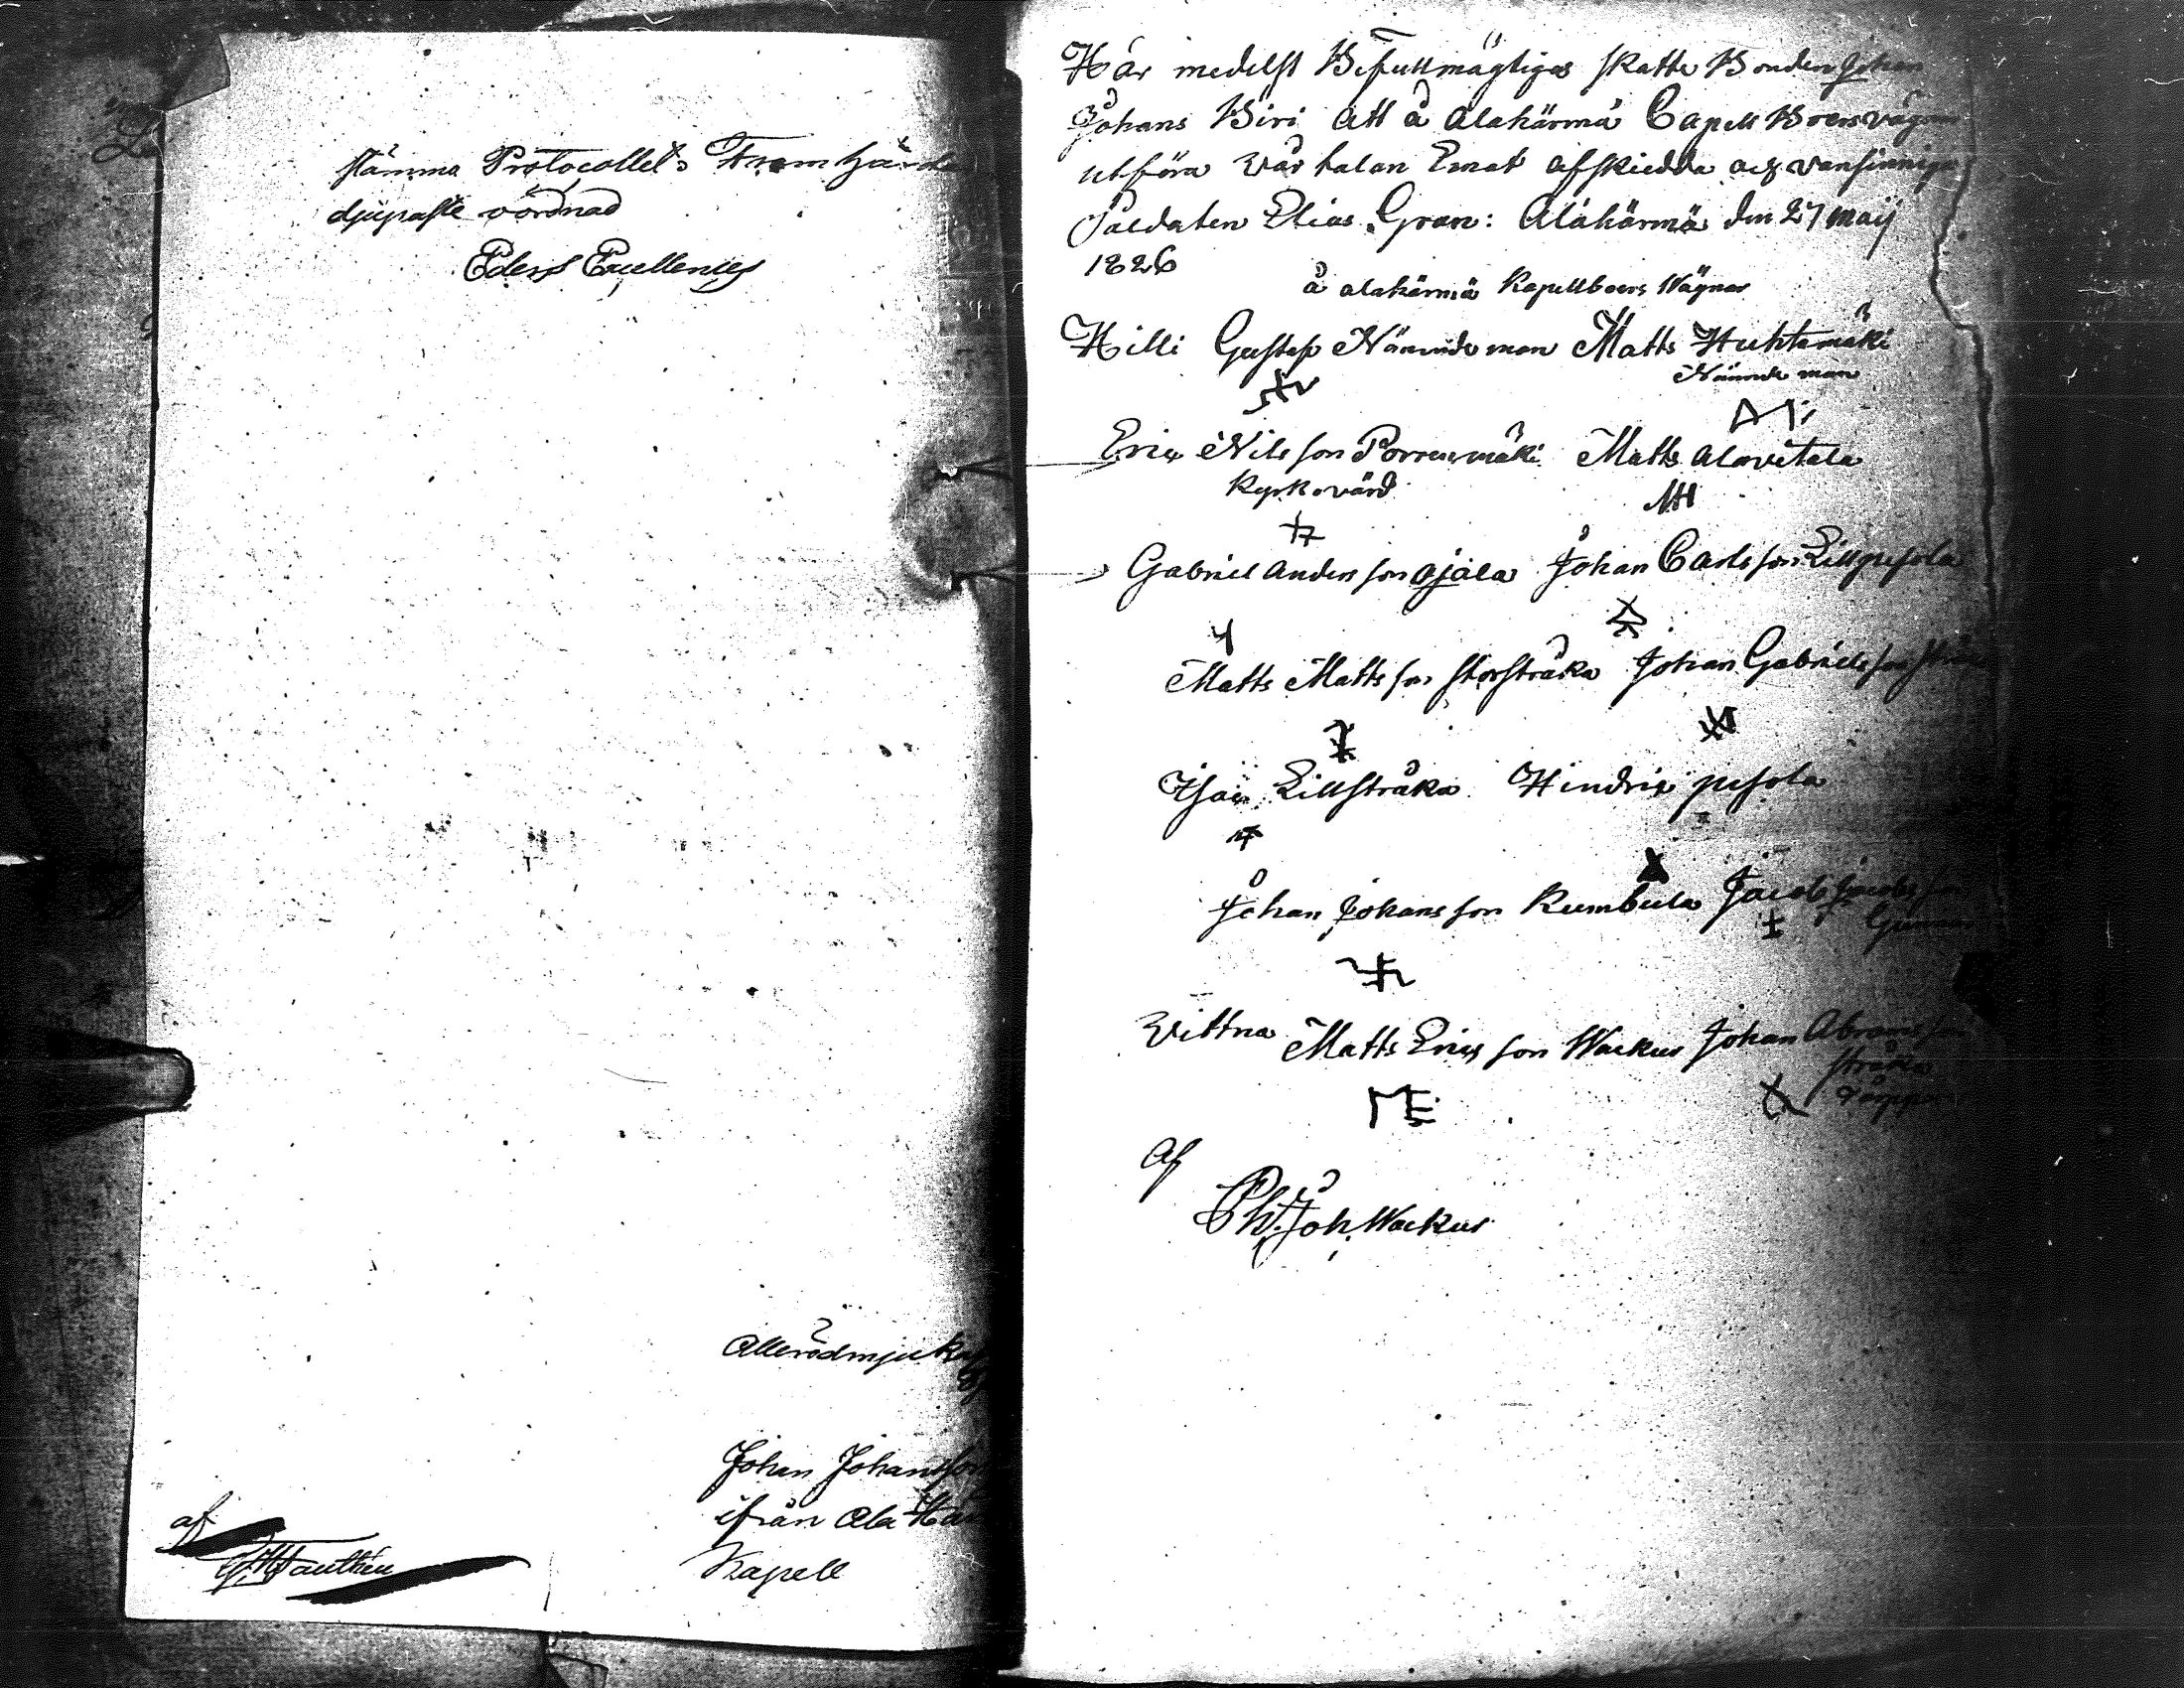 stämma Protocollets Framhärda
djupaste vördnad
Eders Excellences
Allerödmjukas
Johan Johansson
ifrån Ala Här
Kapell
af
Här medelst Befullmägtigas skatte Bonden Johan
Johans Biri att å Alahärmä Capell Boers vägnar
utföra vår talan Emot afskiedda och vansinniga
Soldaten Elias Gran: Alahärmä den 27 maij
1826
å alahärmä Kapellboers Wägnar
Hilli Gustaf Nämndeman Matts Huhtamäki
Nämndeman
Eric Nilsson Porrenmäki Matts Alavitala
Kyrkovärd
MH
Gabriel Andersson Ojala Johan Carlsson Lillpesola
Matts Mattsson Storstråka Johan Gabrielsson
Isac Lillstråka Hindric pesola
Johan Johansson Rumbula Jacob Jacobsson
Vittna Matts Ericsson Wackus Johan Abramsson
Stråka
ME
Af
Joh. Wackus